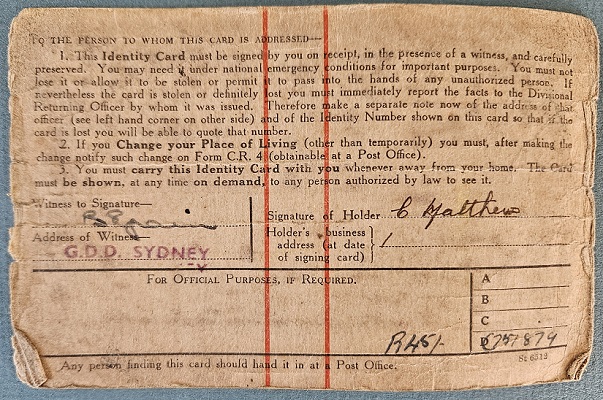 TO THE PERSON TO WHOM THIS CARD IS ADDRESSED—
1. This Identity Card must be signed by you on receipt, in the presence of a witness, and carefully
preserved. You may need it under national emergency conditions for important purposes. You must not
lose it or allow it to be stolen or permit it to pass into the hands of any unauthorized person. If
nevertheless the card is stolen or definitely lost you must immediately report the facts to the Divisional
Returning Officer by whom it was issued. Therefore make a separate note now of the address of that
officer (see left hand corner on other side) and of the Identity Number shown on this card so that if the
card is lost you will be able to quote that number.
2. If you Change your Place of Living (other than temporarily) you must, after making the
change notify such change on Form C.R. 4 (obtainable at a Post Office).
3. You must carry this Identity Card with you whenever away from your home. The Card
must be shown, at any time on demand, to any person authorized by law to see it.
Witness to Signature—
Address of Witness—
G.D.D. SYDNEY
Signature of Holder C Matthews
Holder's business
address (at date
of signing card)
FOR OFFICIAL PURPOSES, IF REQUIRED.
A
B
C
D
R45/-
Any person finding this card should hand it in at a Post Office.